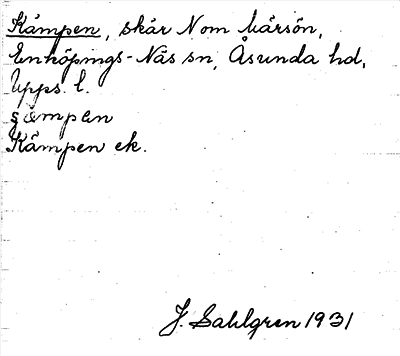 Kämpen, skär N om Märsön,
Enköpings-Näs sn, Åsunda hd,
Upps. l.
çämpen
Kämpen ek.
J. Sahlgren 1931